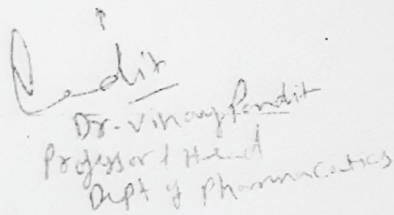 Pandit
Dr. Vinay Pandit
Professor & Head
Dept of Pharmaceutics